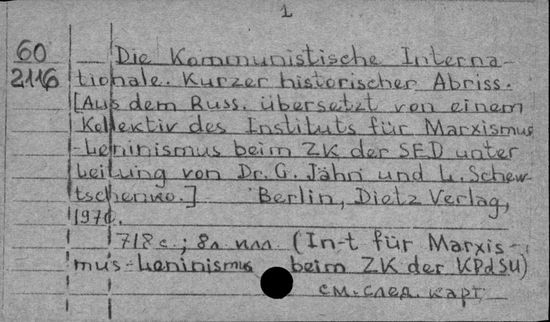 1
60
2116
Die Kommunistische Interna-
tionale. Kurzer historischer Abriss.
[Aus dem Russ. übersetzt von einem
Kollektiv des Instituts für Marxismus
-Leninismus beim ZK der SED unter
Leitung von Dr. G. Jahn und L. Schew-
tschenko.] Berlin, Dietz Verlag,
1970.
718 с.; 8л. илл. (In-t für Marxis-
mus-Leninismus beim ZK der KPdSU)
см. след. карт.